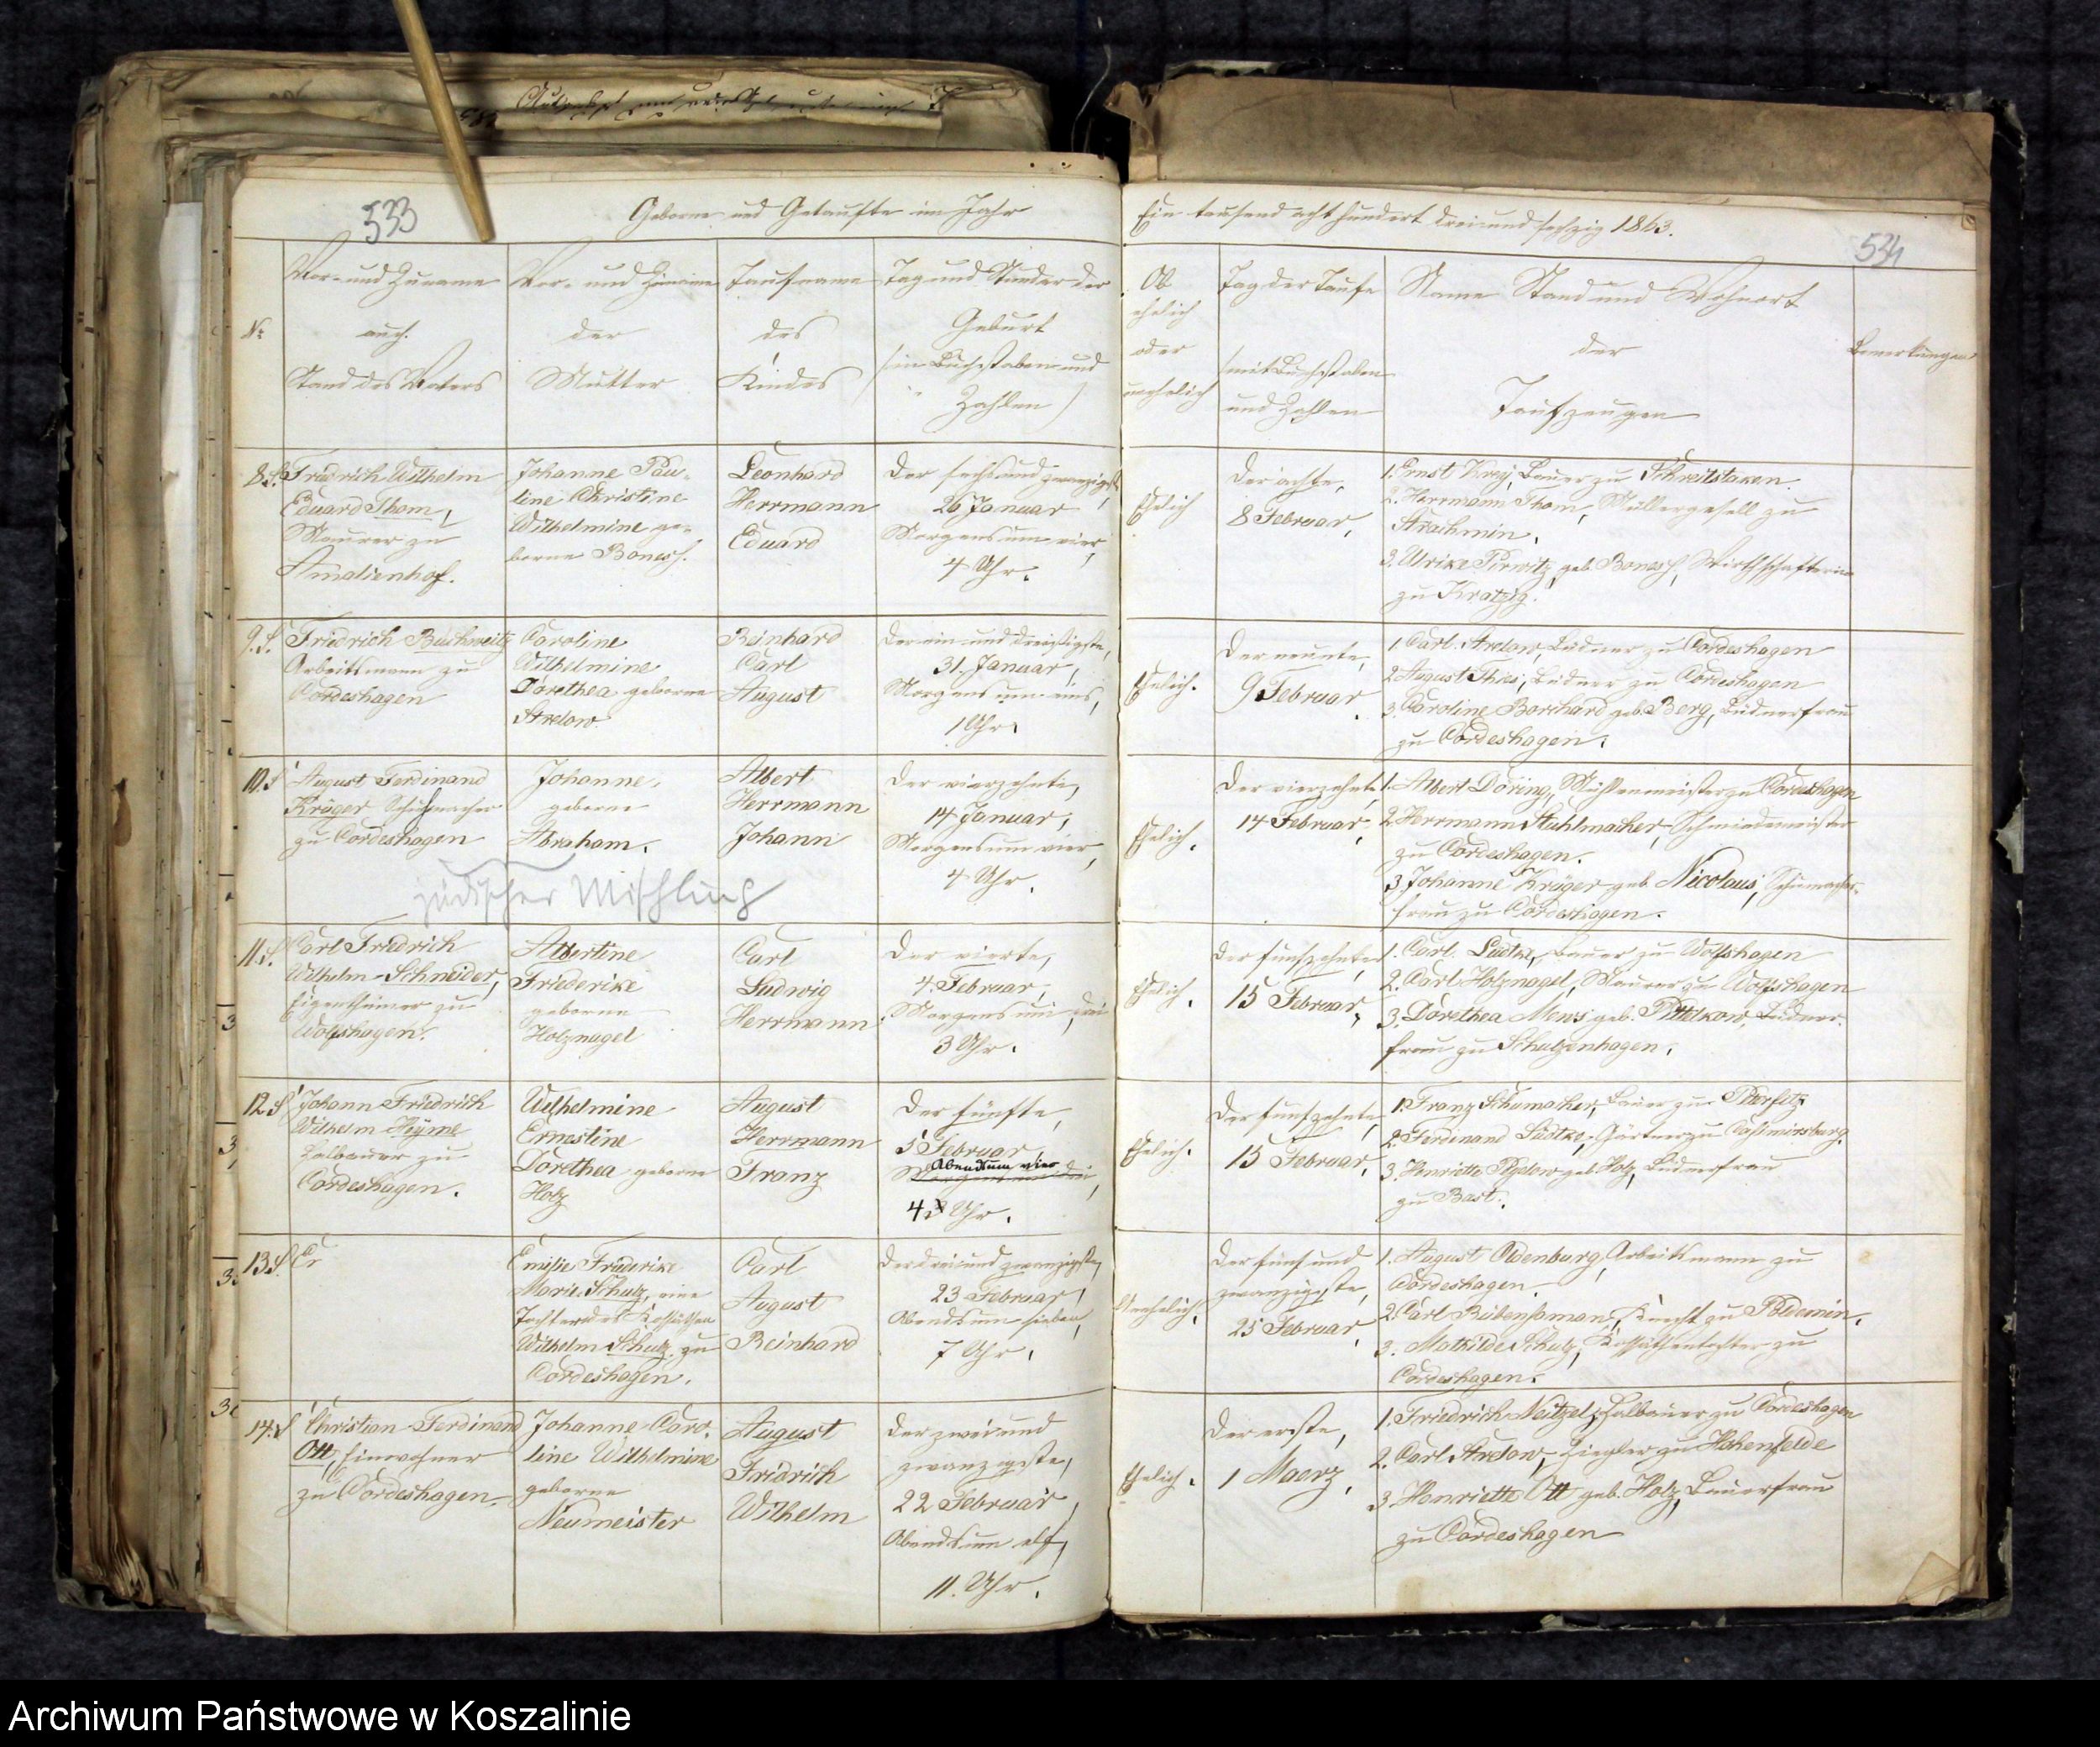 533
Geborne und Getaufte im Jahr
Ein tausend acht hundert drei und sechzig 1863.
534
No
Vor- und Zuname
auch
Stand des Vaters
Vor- und Zuname
der
Mutter
Taufname
des
Kindes
Tag und Stunde der
Geburt
(in Buchstaben und
Zahlen)
Ob
ehelich
oder
unehelich
Tag der Taufe
(mit Buchstaben
und Zahlen
Name Stand und Wohnort
der
Taufzeugen
Bemerkungen
8. S. Friedrich Wilhelm
Eduard Thom,
Maurer zu
Amalienhof.
Johanne Pau-
line Christine
Wilhelmine ge-
borne Boness.
Leonhard
Herrmann
Eduard
Der sechs und zwanzigste
26 Januar
Morgens um vier,
4 Uhr.
Ehelich
Der achte,
8 Februar,
1. Ernst Krey, Bauer zu Schreitstaken.
2. Herrmann Thom, Müllergesell zu
Strachmin.
3. Ulrike Pirwitz geb. Boness, Wirthschafterin
zu Kratzig.
9. S. Friedrich Buchweitz
Arbeitsmann zu
Cordeshagen
Caroline
Wilhelmine
Dorethea geborne
Strelow.
Reinhard
Carl
August
Der ein und dreißigste,
31. Januar,
Morgens um eins,
1 Uhr.
Ehelich.
Der neunte,
9 Februar.
1. Carl Strelow, Büdner zu Cordeshagen
2. August Thies, Büdner zu Cordeshagen
3. Caroline Borchard geb. Berg, Büdnerfrau
zu Cordeshagen.
10. S August Ferdinand
Kröger Schuhmacher
zu Cordeshagen
Johanne
geborne
Abraham.
Albert
Herrmann
Johann
Der vierzehnte,
14 Januar,
Morgens um vier,
4 Uhr.
Ehelich.
Der vierzehnte,
14 Februar,
1. Albert Döring, Mühlenmeister zu Cordeshagen
2. Herrmann Stuhlmacher, Schmiedemeister
zu Cordeshagen.
3. Johanne Kröger geb. Nicolaus, Schumacher-
frau zu Cordeshagen.
jüdischer Mischling
11. S. Carl Friedrich
Wilhelm Schneider,
Eigenthümer zu
Wolfshagen.
Albertine
Friederike
geborne
Holznagel
Carl
Ludwig
Herrmann
Der vierte,
4. Februar,
Morgens um drei
3 Uhr.
Ehelich.
Der funfzehnte,
15 Februar,
1. Carl Ludtke, Bauer zu Wolfshagen
2. Carl Holznagel, Maurer zu Wolfshagen
3. Dorethea Mews geb. Pittelkow, Büdner-
frau zu Schulzenhagen.
12 S Johann Friedrich
Wilhelm Heyme
Halbauer zu
Cordeshagen.
Wilhelmine
Ernestine
Dorethea geborne
Holz
August
Herrmann
Franz
Der fünfte,
5 Februar
Abends um vier
4 Uhr.
Ehelich.
Der funfzehnte,
15 Februar,
1. Franz Schumacher, Bauer zu Peterfitz
2. Ferdinand Ludtke, Gärtner zu Casimirsburg.
3. Henriette geb. Holz, Büdnerfrau
zu Bast.
13 S. Er
Emilie Friederike
Marie Schulz, eine
Tochter des Kossäthen
Wilhelm Schulz zu
Cordeshagen.
Carl
August
Reinhard
Der drei und zwanzigste,
23 Februar,
Abends um sieben,
7 Uhr.
Unehelich.
Der fünf und
zwanzigste,
25 Februar,
1. August Oldenburg, Arbeitsmann zu
Cordeshagen.
2. Carl Rubensaman, Knecht zu Poldemin.
3. Mathilde Schulz, Kossäthentochter zu
Cordeshagen.
14. S Christian Ferdinand
Ott, Einwohner
zu Cordeshagen.
Johanne Caro-
line Wilhelmine
geborne
Neumeister
August
Fridrich
Wilhelm
Der zwei und
zwanzigste,
22 Februar,
Abends um elf,
11. Uhr.
Ehelich.
Der erste,
1 Maerz,
1. Friedrich Neitzel, Halbauer zu Cordeshagen
2. Carl Strelow, Ziegler zu Hohenfelde
3. Henriette Ott geb. Holz, Bauerfrau
zu Cordeshagen
Archiwum Państwowe w Koszalinie